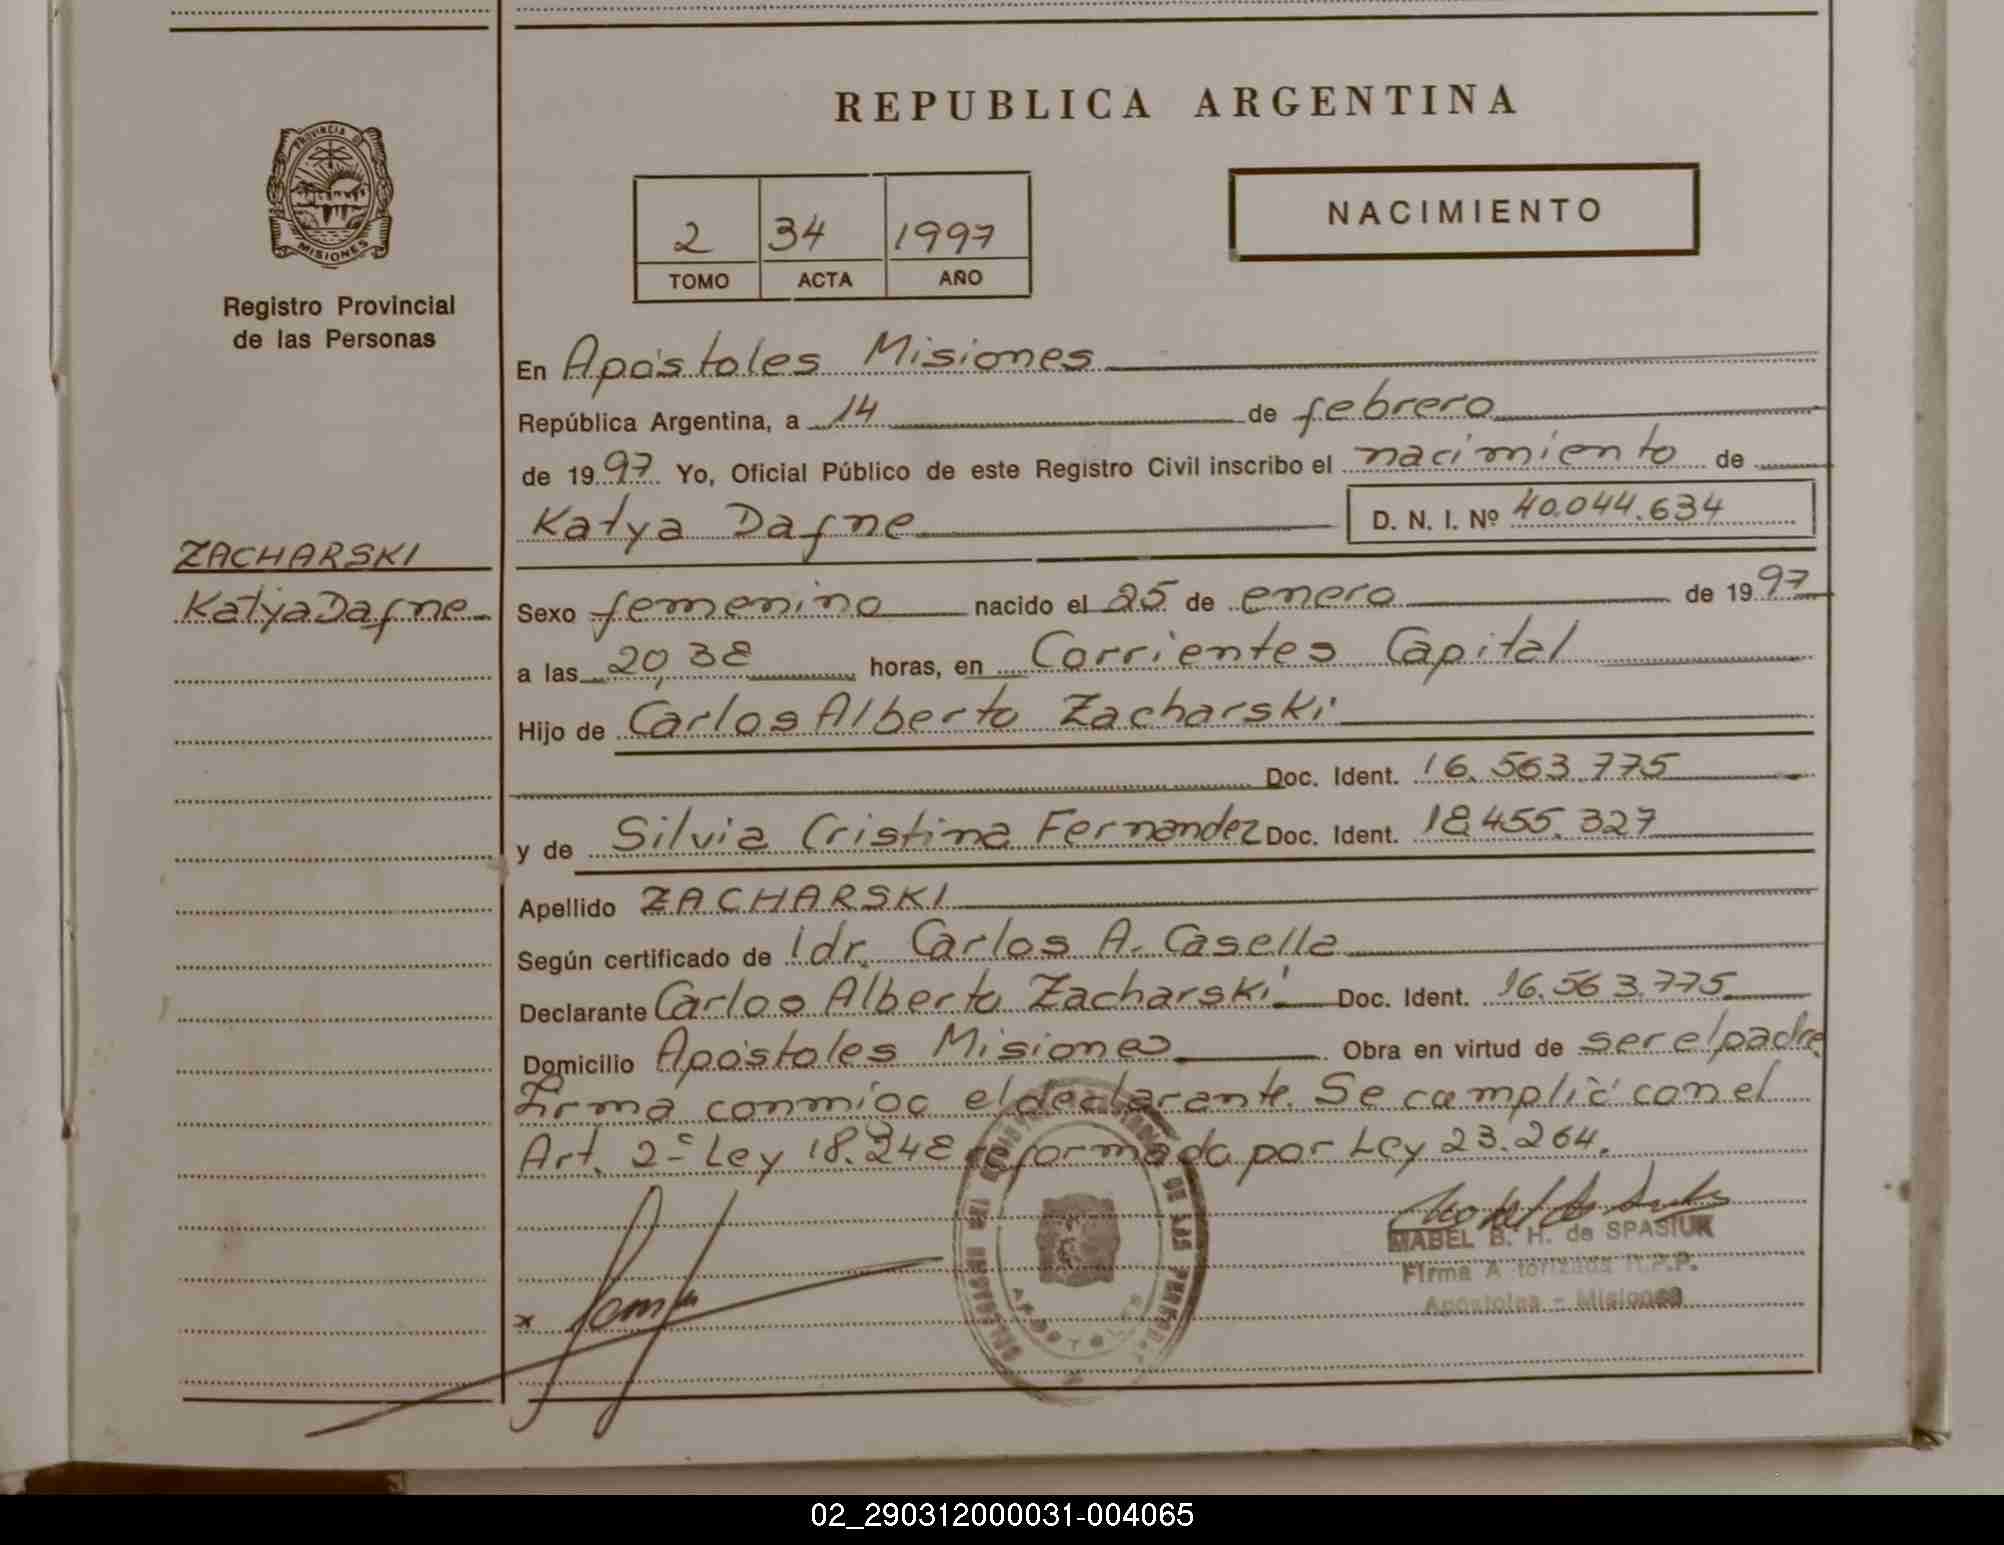 REPUBLICA ARGENTINA
PROVINCIA DE
MISIONES
Registro Provincial
de las Personas
2 34 1997
TOMO ACTA AÑO
NACIMIENTO
En Apóstoles Misiones
República Argentina, a 14 de febrero
de 1997 Yo, Oficial Público de este Registro Civil inscribo el nacimiento de
Katya Dafne D. N. I. Nº 40.044.634
ZACHARSKI
Katya Dafne
Sexo femenino nacido el 25 de enero de 1997
a las 20,38 horas, en Corrientes Capital
Hijo de Carlos Alberto Zacharski
Doc. Ident. 16.563.775
y de Silvia Cristina Fernandez Doc. Ident. 18.455.327
Apellido ZACHARSKI
Según certificado de Carlos A. Casella
Declarante Carlos Alberto Zacharski Doc. Ident. 16.563.775
Domicilio Apóstoles Misiones Obra en virtud de ser el padre.
Firma conmigo el declarante. Se cumplió con el
Art. 2º Ley 18.248 reformada por Ley 23.264.
MABEL B. H. de SPASIUK
Firma A torizada R.P.P.
Apóstoles - Misiones
DE LAS
APOSTOLES
02_290312000031-004065